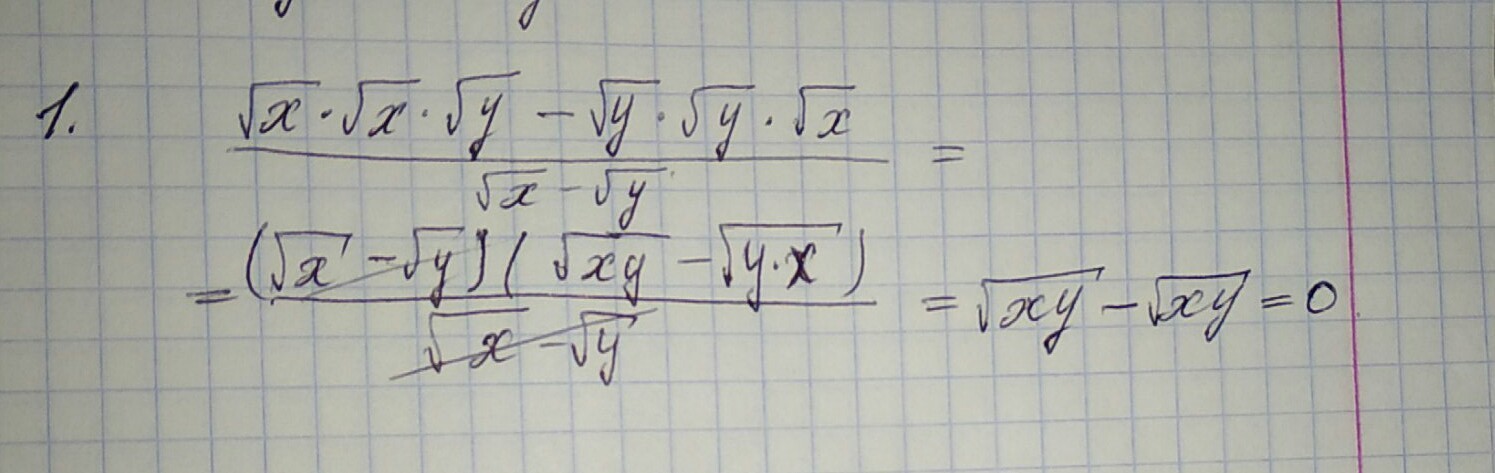 1. (√x · √x · √y − √y · √y · √x) / (√x − √y) =
= (√x − √y)(√xy − √y·x) / (√x − √y) = √xy − √xy = 0